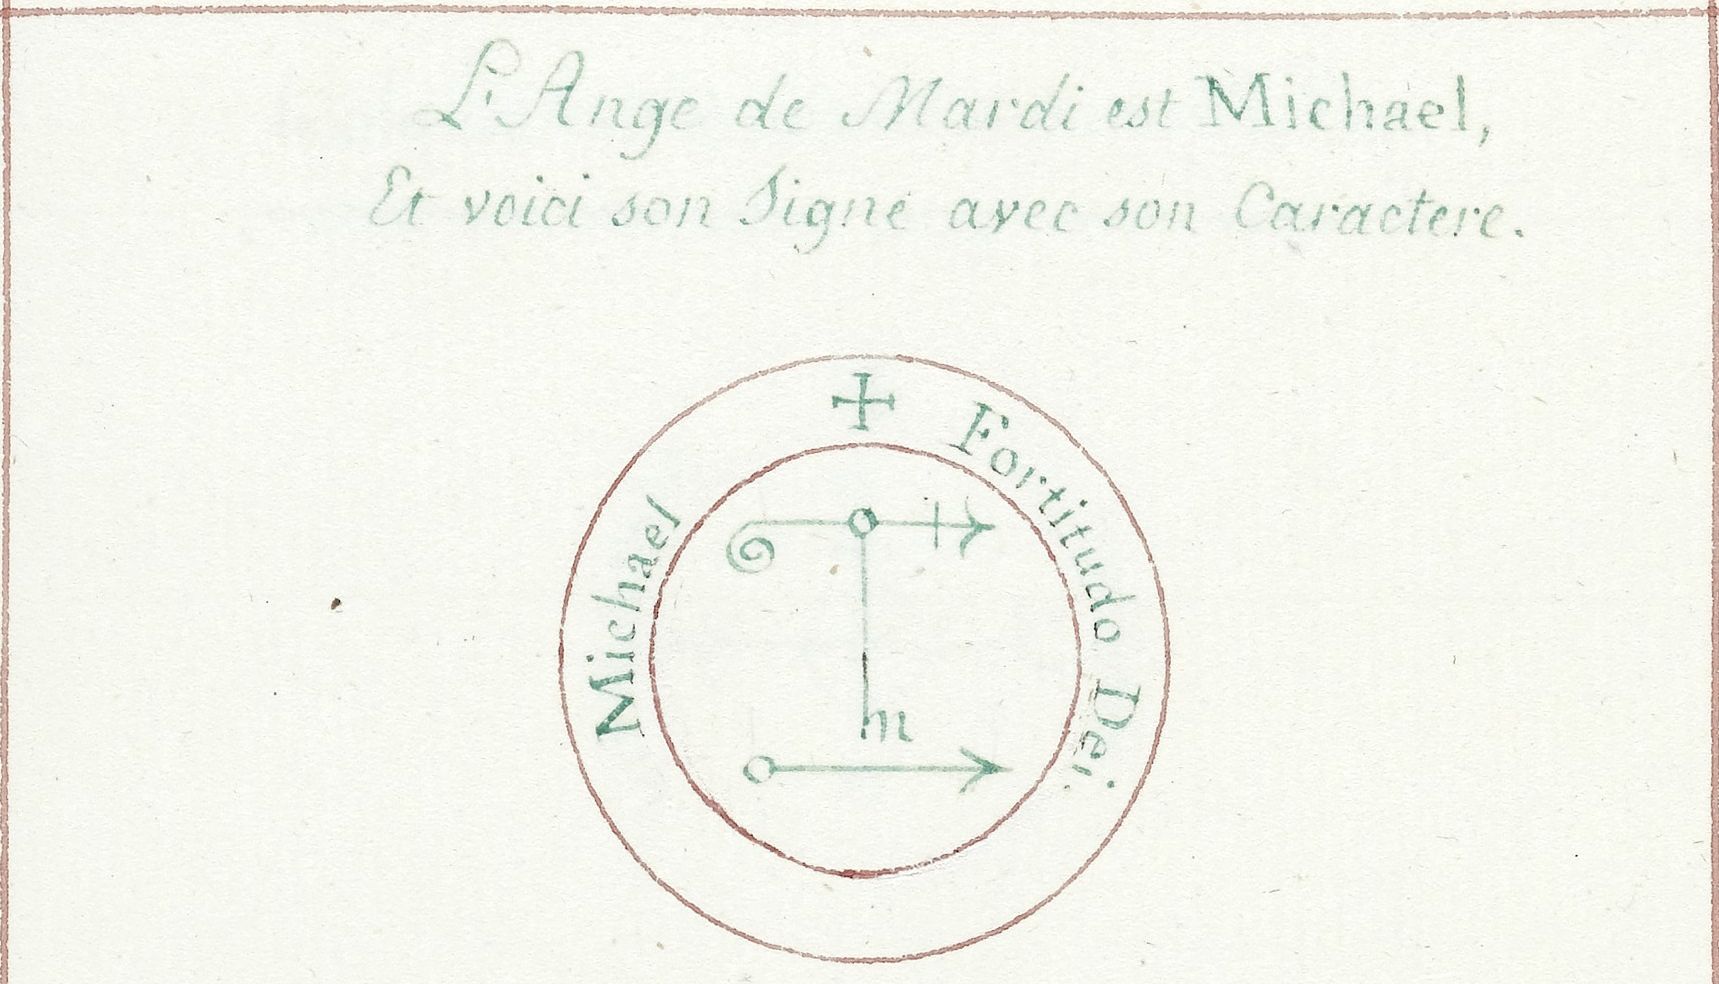 L'Ange de Mardi est Michael,
Et voici son Signe avec son Caractere.
+ Fortitudo Dei.
Michael
m